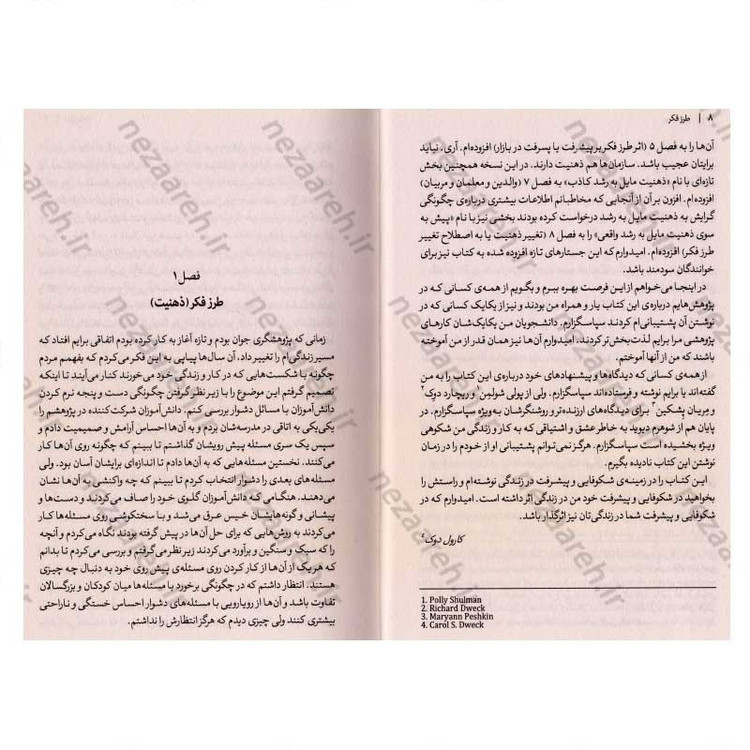 ۸ | طرز فکر
آن‌ها را به فصل ۵ (اثر طرز فکر بر پیشرفت یا پسرفت در بازار) افزوده‌ام. آری، نباید
برایتان عجیب باشد. سازمان‌ها هم ذهنیت دارند. در این نسخه همچنین بخش
تازه‌ای با نام «ذهنیت مایل به رشد کاذب» به فصل ۷ (والدین و معلمان و مربیان)
افزوده‌ام. افزون بر آن از آنجایی که مخاطبانم اطلاعات بیشتری درباره‌ی چگونگی
گرایش به ذهنیت مایل به رشد درخواست کرده بودند بخشی نیز با نام «پیش به
سوی ذهنیت مایل به رشد واقعی» را به فصل ۸ (تغییر ذهنیت یا به اصطلاح تغییر
طرز فکر) افزوده‌ام. امیدوارم که این جستارهای تازه افزوده شده به کتاب نیز برای
خوانندگان سودمند باشد.
در اینجا می‌خواهم از این فرصت بهره ببرم و بگویم از همه‌ی کسانی که در
پژوهش‌هایم درباره‌ی این کتاب یار و همراه من بودند و نیز از یکایک کسانی که در
نوشتن آن پشتیبانی‌ام کردند سپاسگزارم. دانشجویان من یکایک‌شان کارهای
پژوهشی مرا برایم لذت‌بخش‌تر کردند. امیدوارم آن‌ها نیز همان قدر از من آموخته
باشند که من از آنها آموختم.
از همه‌ی کسانی که دیدگاه‌ها و پیشنهادهای خود درباره‌ی این کتاب را به من
گفته‌اند یا برایم نوشته و فرستاده‌اند سپاسگزارم. ولی از پولی شولمن۱ و ریچارد دوک۲
و مریان پشکین۳ برای دیدگاه‌های ارزنده‌تر و روشنگرشان به‌ویژه سپاسگزارم. در
پایان هم از شوهرم دیوید به خاطر عشق و اشتیاقی که به کار و زندگی من شکوهی
ویژه بخشیده است سپاسگزارم. هرگز نمی‌توانم پشتیبانی او از خودم را در زمان
نوشتن این کتاب نادیده بگیرم.
این کتاب را در زمینه‌ی شکوفایی و پیشرفت در زندگی نوشته‌ام و راستش را
بخواهید در شکوفایی و پیشرفت خود من در زندگی اثر داشته است. امیدوارم که در
شکوفایی و پیشرفت شما در زندگی‌تان نیز اثرگذار باشد.
کارول دوک۴
1. Polly Shulman
2. Richard Dweck
3. Maryann Peshkin
4. Carol S. Dweck
فصل ۱
طرز فکر (ذهنیت)
زمانی که پژوهشگری جوان بودم و تازه آغاز به کار کرده بودم اتفاقی برایم افتاد که
مسیر زندگی‌ام را تغییر داد. آن سال‌ها پیاپی به این فکر می‌کردم که بفهمم مردم
چگونه با شکست‌هایی که در کار و زندگی خود می‌خورند کنار می‌آیند تا اینکه
تصمیم گرفتم این موضوع را با زیر نظر گرفتن چگونگی دست و پنجه نرم کردن
دانش‌آموزان با مسائل دشوار بررسی کنم. دانش‌آموزان شرکت‌کننده در پژوهشم را
یکی‌یکی به اتاقی در مدرسه‌شان بردم و به آن‌ها احساس آرامش و صمیمیت دادم و
سپس یک سری مسئله پیش رویشان گذاشتم تا ببینم که چگونه روی آن‌ها کار
می‌کنند. نخستین مسئله‌هایی که به آن‌ها دادم تا اندازه‌ای برایشان آسان بود. ولی
مسئله‌های بعدی را دشوار انتخاب کردم تا ببینم که چه واکنشی به آن‌ها نشان
می‌دهند. هنگامی که دانش‌آموزان گلوی خود را صاف می‌کردند و دست‌ها و
پیشانی و گونه‌هایشان خیس عرق می‌شد و با سختکوشی روی مسئله‌ها کار
می‌کردند به روش‌هایی که برای حل آن‌ها در پیش گرفته بودند نگاه می‌کردم و آنچه
را که سبک و سنگین و برآورد می‌کردند زیر نظر می‌گرفتم و بررسی می‌کردم تا بدانم
که هر یک از آن‌ها از کار کردن روی مسئله‌ی پیش روی خود به دنبال چه چیزی
هستند. انتظار داشتم که در چگونگی برخورد با مسئله‌ها میان کودکان و بزرگسالان
تفاوت باشد و آن‌ها از رویارویی با مسئله‌های دشوار احساس خستگی و ناراحتی
بیشتری کنند ولی چیزی دیدم که هرگز انتظارش را نداشتم.
nezaareh.ir
nezaareh.ir
nezaareh.ir
nezaareh.ir
nezaareh.ir
nezaareh.ir
nezaareh.ir
nezaareh.ir
nezaareh.ir